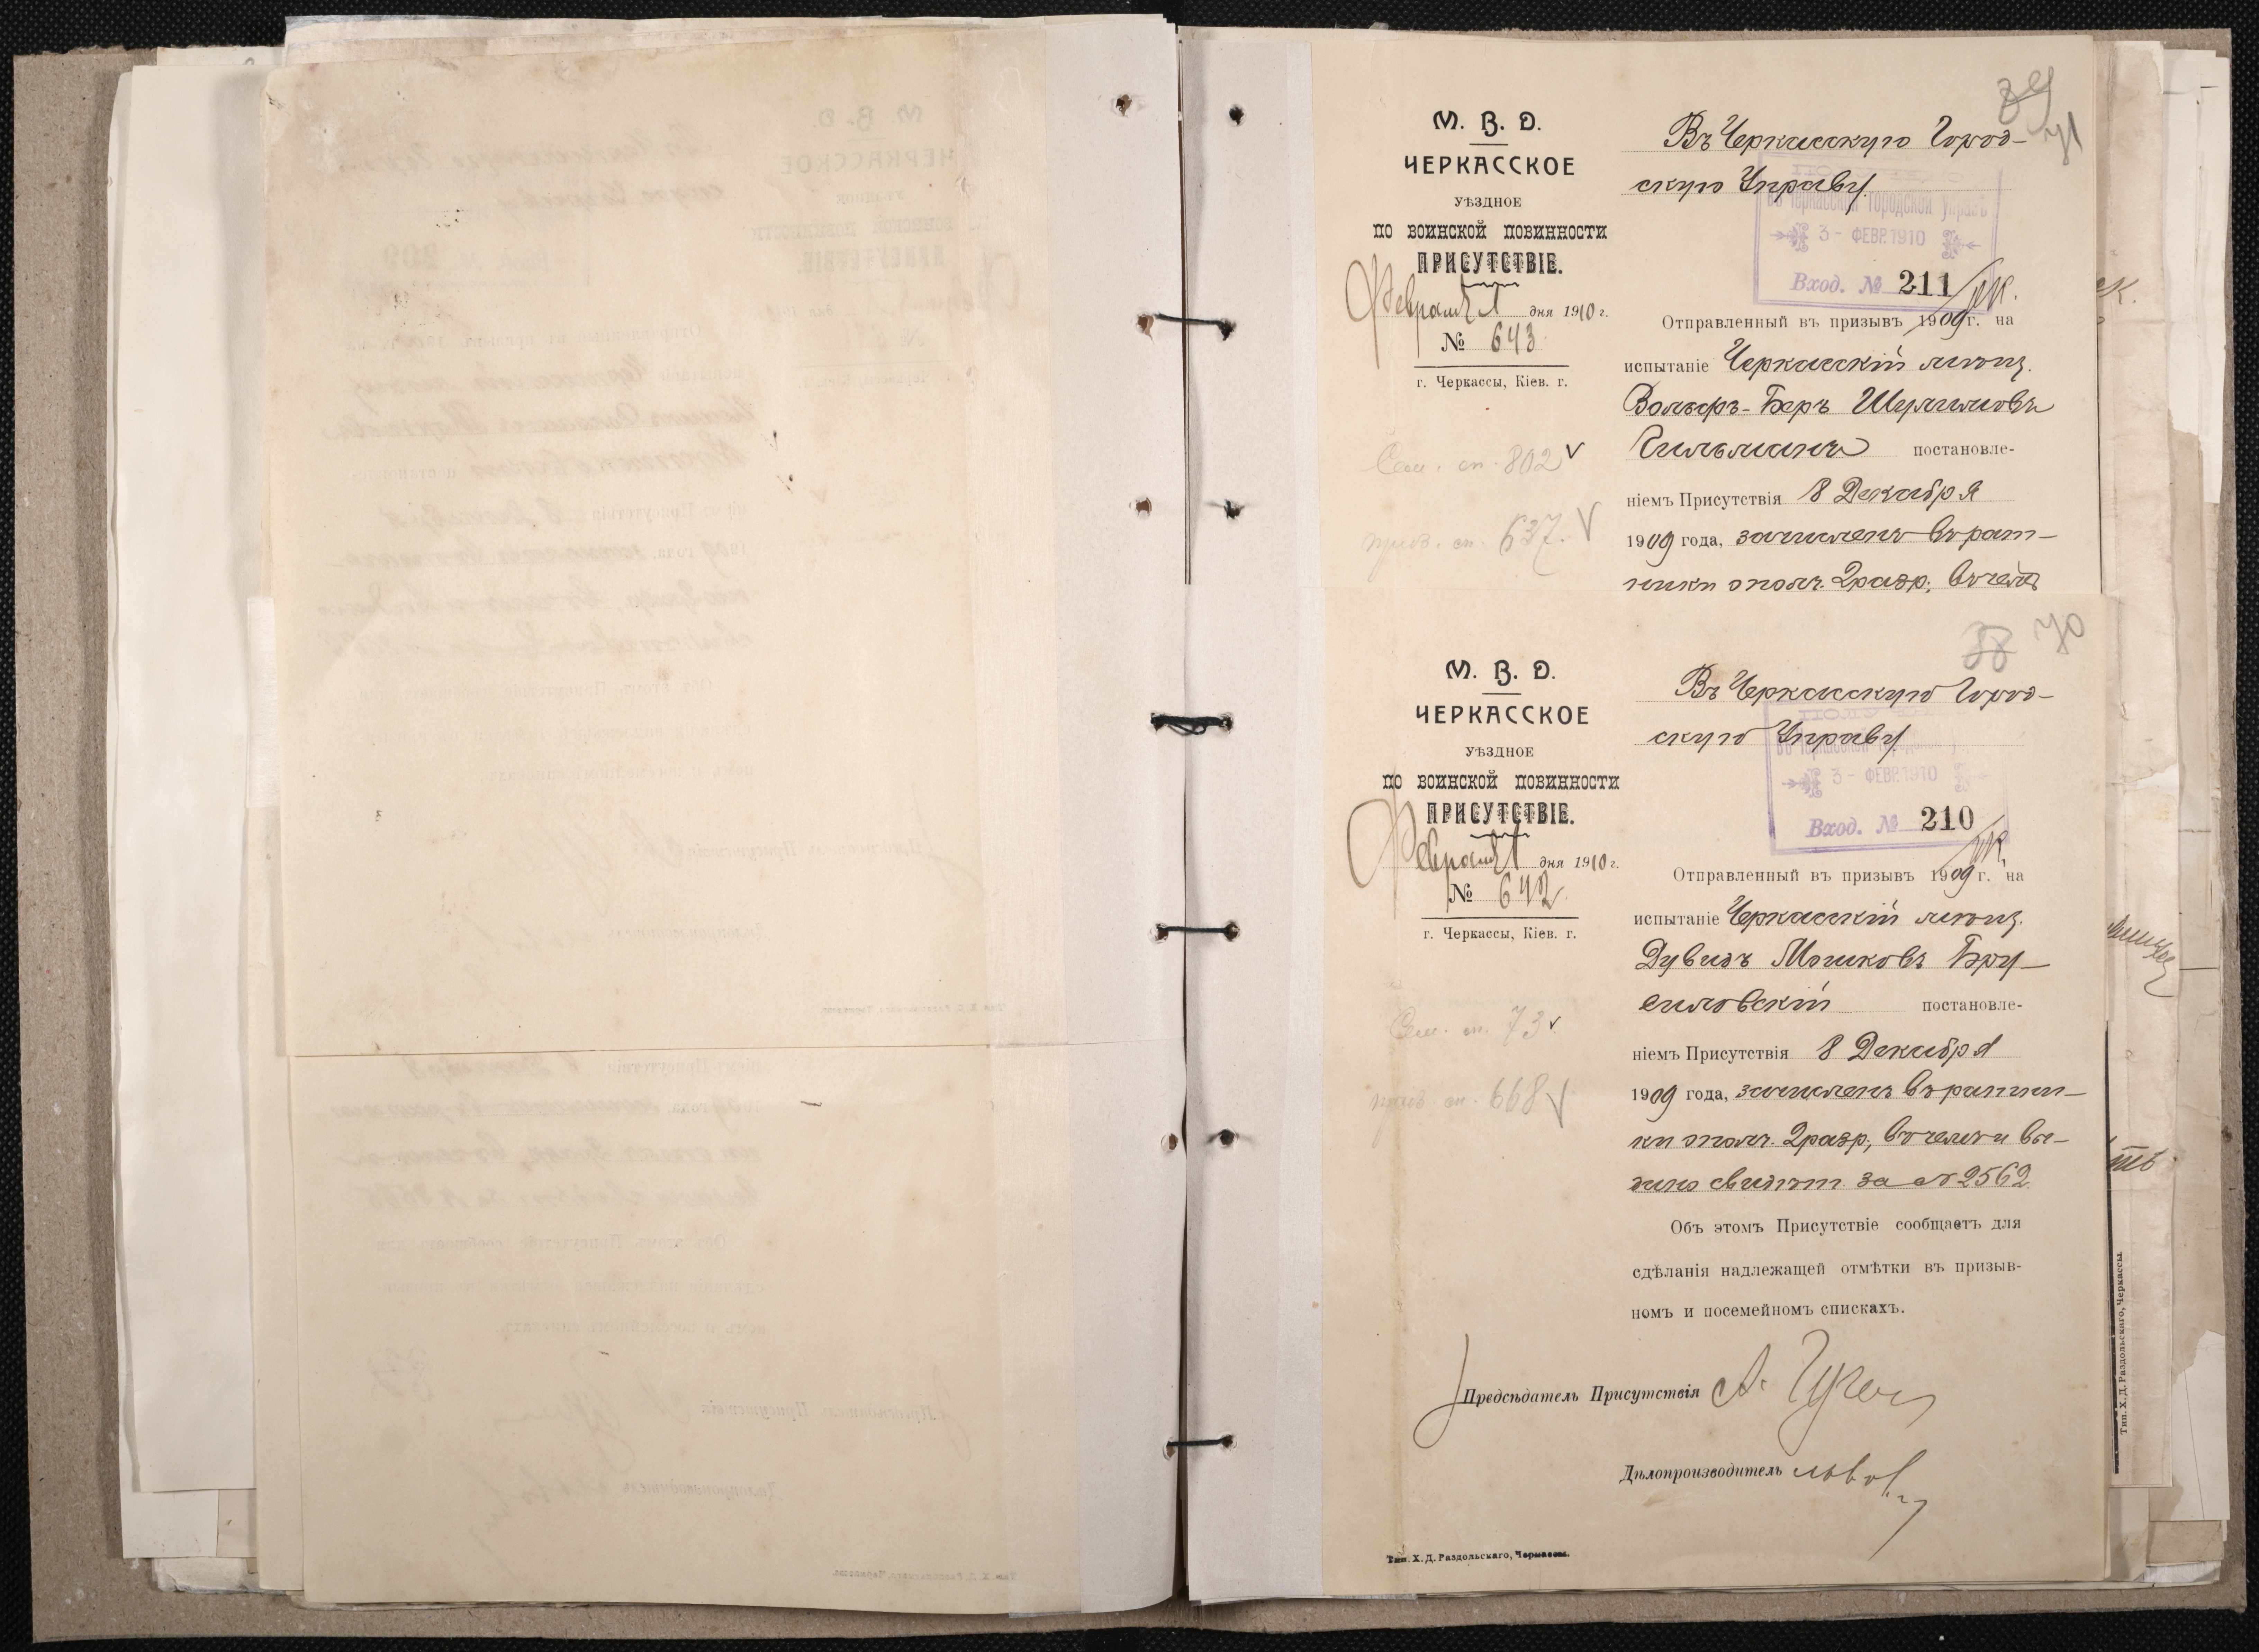 39
71
М. В. Д.
ЧЕРКАССКОЕ
УѢЗДНОЕ
ПО ВОИНСКОЙ ПОВИННОСТИ
ПРИСУТСТВІЕ.
Февраля 1 дня 1910 г.
№ 643
г. Черкассы, Кіев. г.
Сем. сп. 802 v
приз. сп. 637. v
Въ Черкасскую Город-
скую Управу
въ Черкасской Городской Управѣ
3 - ФЕВР. 1910
Вход. № 211
Отправленный въ призывъ 1909 г. на
испытаніе Черкасскій мѣщ.
Вольфъ-Беръ Шулимовъ
Гильманъ постановле-
ніемъ Присутствія 8 Декабря
1909 года, зачисленъ въ рат-
ники ополч. 2 разр., въ чемъ
38 70
М. В. Д.
ЧЕРКАССКОЕ
УѢЗДНОЕ
ПО ВОИНСКОЙ ПОВИННОСТИ
ПРИСУТСТВІЕ.
Февраля 1 дня 1910 г.
№ 642
г. Черкассы, Кіев. г.
Сем. сп. 73 v
приз. сп. 668 v
Въ Черкасскую Город-
скую Управу
3 - ФЕВР. 1910
Вход. № 210
Отправленный въ призывъ 1909 г. на
испытаніе Черкасскій мѣщ.
Дувидъ Мошковъ Бру-
силовскій постановле-
ніемъ Присутствія 8 Декабря
1909 года, зачисленъ въ ратни-
ки ополч. 2 разр., въ чемъ и вы-
дано свидѣт. за № 2562
Объ этомъ Присутствіе сообщаетъ для
сдѣланія надлежащей отмѣтки въ призыв-
номъ и посемейномъ спискахъ.
Предсѣдатель Присутствія
Дѣлопроизводитель
Тип. Х. Д. Раздольскаго, Черкассы.
Тип. Х. Д. Раздольскаго, Черкассы.